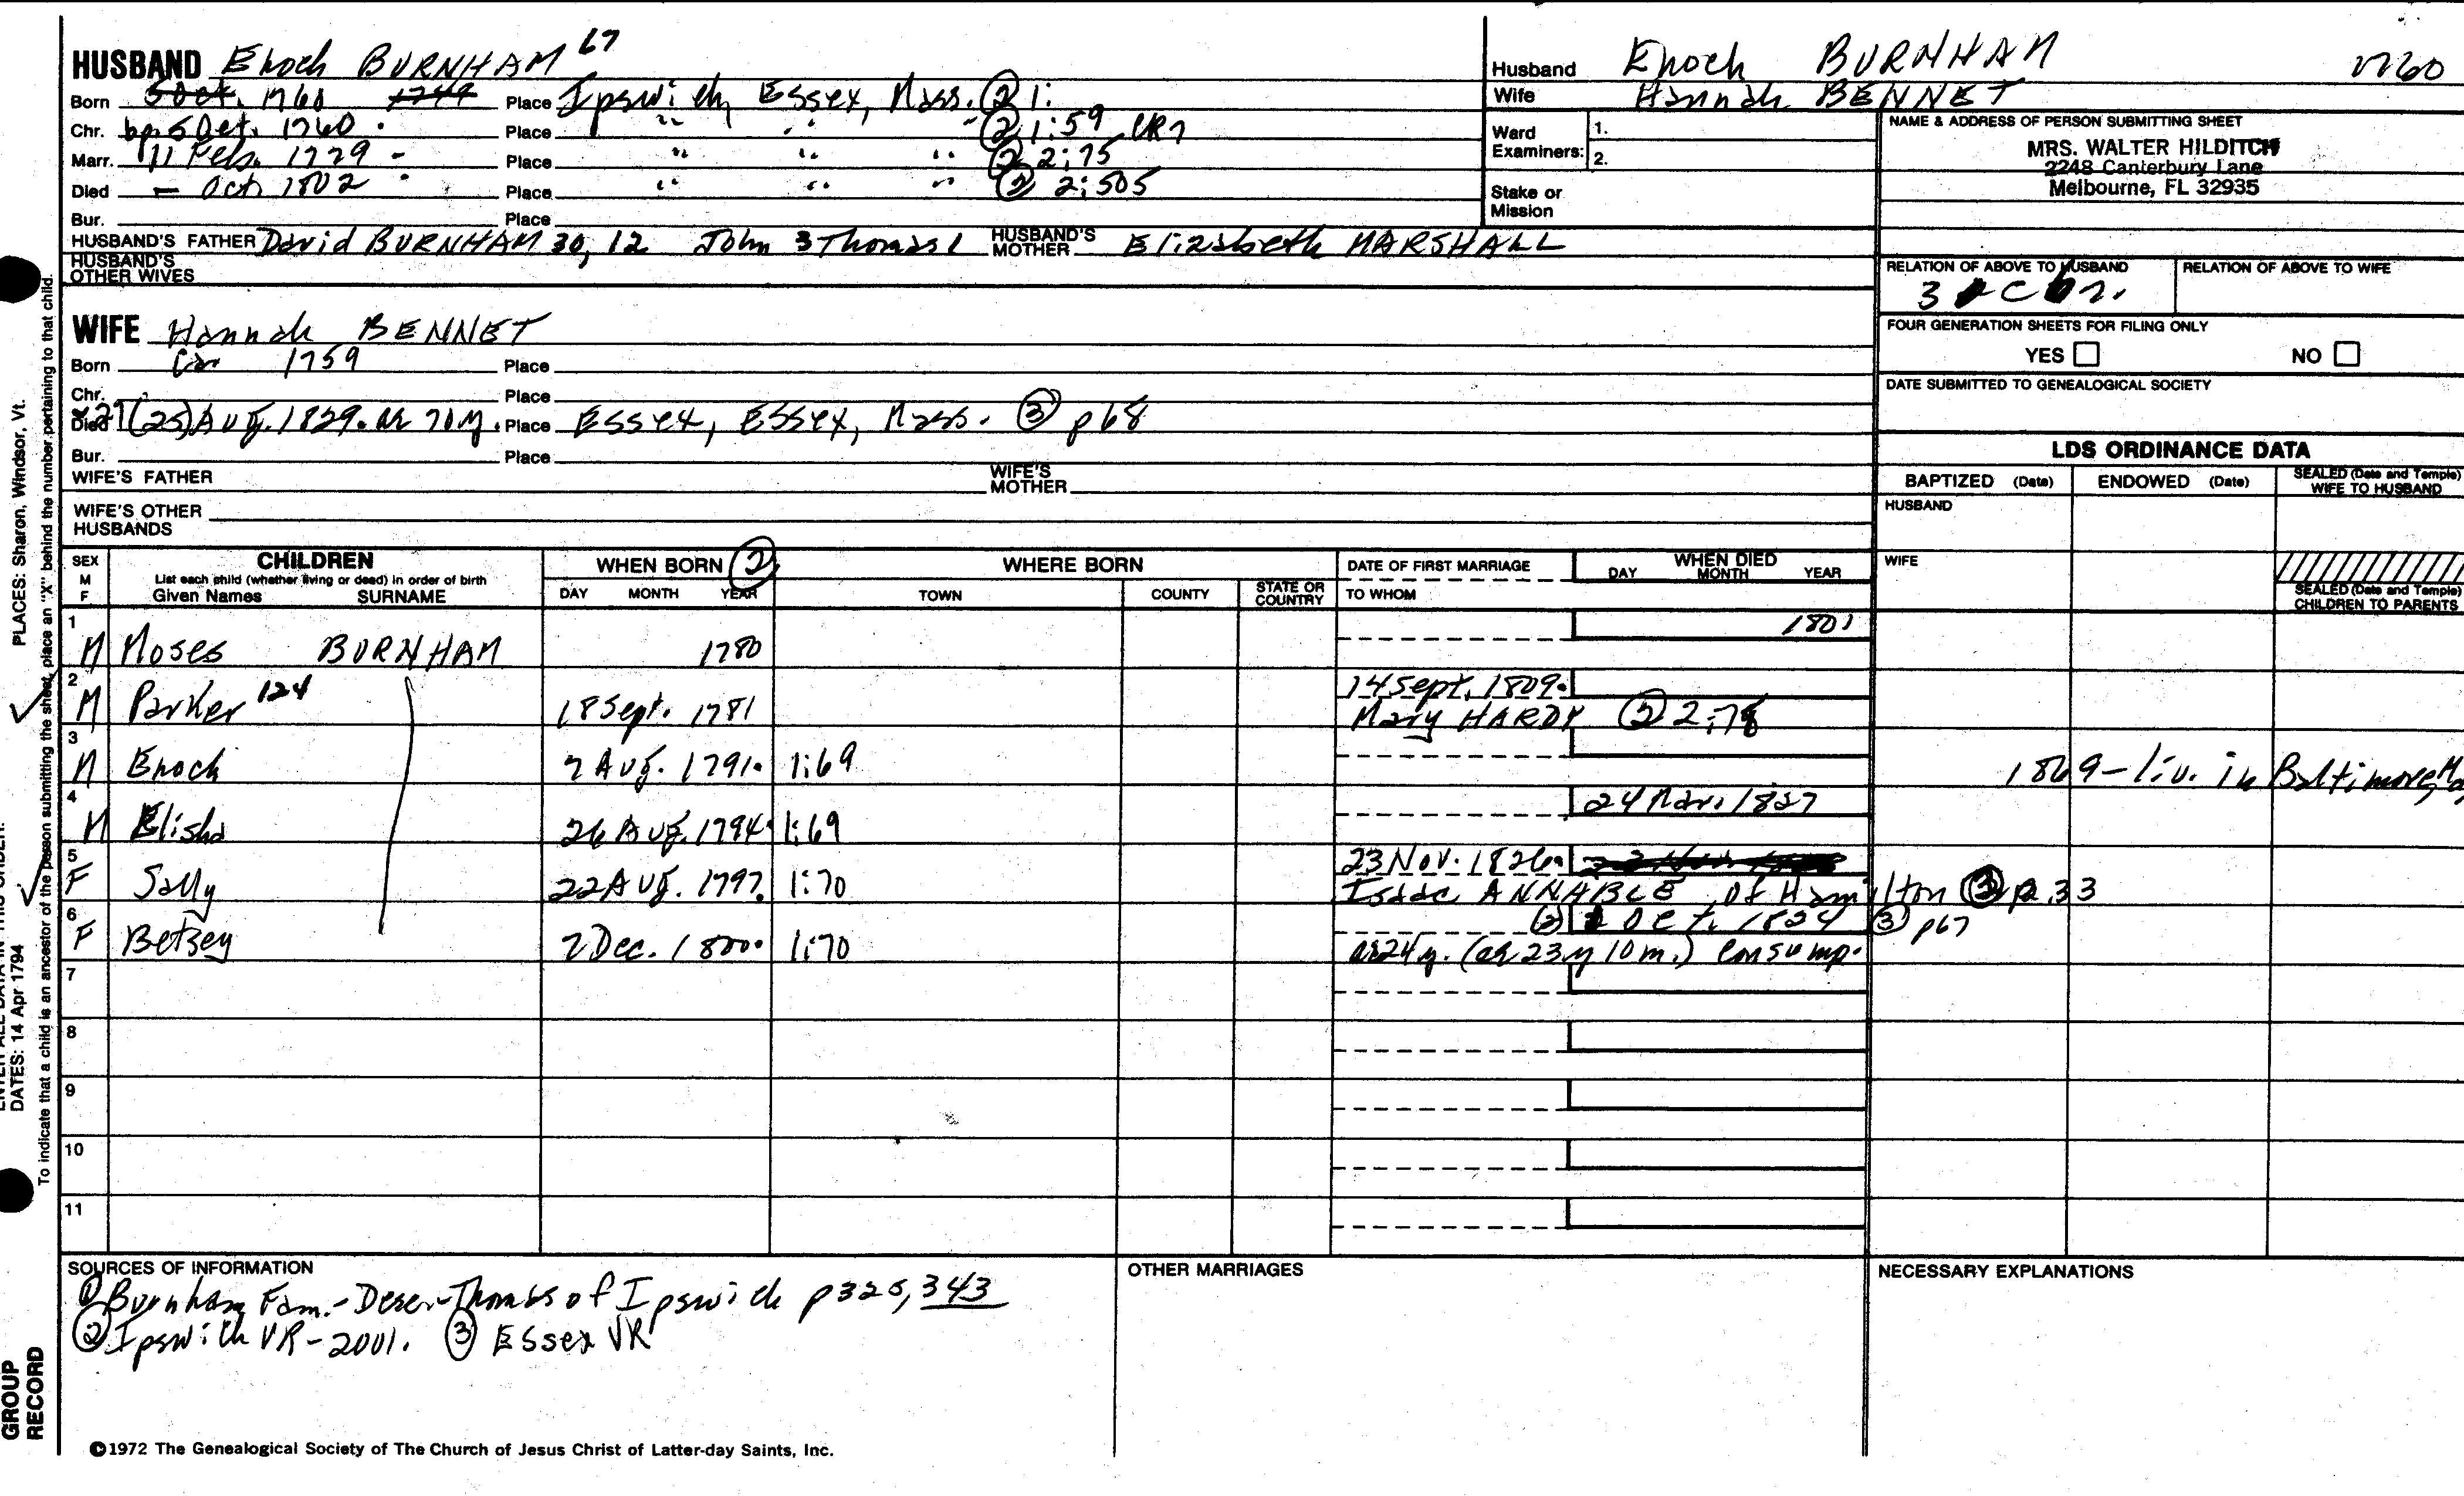 HUSBAND Enoch BURNHAM 67
Born 5 Oct. 1760 Place Ipswich, Essex, Mass. ② 1:
Chr. bp. 5 Oct. 1760 . Place " " " ② 1:59 CR7
Marr. 11 Feb. 1779 - Place " " " ② 2:75
Died - Oct. 1802 Place " " " ② 2:505
Bur. Place
HUSBAND'S FATHER David BURNHAM 30, 12 John 3 Thomas 1 HUSBAND'S MOTHER Elizabeth MARSHALL
HUSBAND'S OTHER WIVES
Husband Enoch BURNHAM 1760
Wife Hannah BENNET
Ward Examiners: 1.
2.
Stake or Mission
NAME & ADDRESS OF PERSON SUBMITTING SHEET
MRS. WALTER HILDITCH
2248 Canterbury Lane
Melbourne, FL 32935
RELATION OF ABOVE TO HUSBAND RELATION OF ABOVE TO WIFE
FOUR GENERATION SHEETS FOR FILING ONLY
YES NO
DATE SUBMITTED TO GENEALOGICAL SOCIETY
WIFE Hannah BENNET
Born Ca 1759 Place
Chr. Place
Died 27 (25) Aug. 1829. ae 70 y. Place Essex, Essex, Mass. ③ p 68
Bur. Place
WIFE'S FATHER WIFE'S MOTHER
WIFE'S OTHER HUSBANDS
LDS ORDINANCE DATA
BAPTIZED (Date) ENDOWED (Date) SEALED (Date and Temple) WIFE TO HUSBAND
HUSBAND
WIFE
SEALED (Date and Temple) CHILDREN TO PARENTS
SEX M F CHILDREN
List each child (whether living or dead) in order of birth
Given Names SURNAME
WHEN BORN ②
DAY MONTH YEAR
WHERE BORN
TOWN COUNTY STATE OR COUNTRY
DATE OF FIRST MARRIAGE
TO WHOM
WHEN DIED
DAY MONTH YEAR
1 1801
M Moses BURNHAM 1780
2 14 Sept. 1809.
M Parker 124 18 Sept. 1781 Mary HARDY ② 2:78
3
M Enoch 7 Aug. 1791. 1:69 1869 - liv. in Baltimore,
4 24 Mar. 1827
M Elisha 26 Aug. 1794. 1:69
5 23 Nov. 1826.
F Sally 22 Aug. 1797. 1:70 Isaac ANNABLE of Hamilton ③ p. 33
6 Oct. 1824 ③ p67
F Betsey 7 Dec. 1800. 1:70 ae 24 y. (ae 23 y 10 m.) consump.
7
8
9
10
11
SOURCES OF INFORMATION
① Burnham Fam. - Desc. Thomas of Ipswich p 325, 343
② Ipswich VR - 2001. ③ Essex VR
OTHER MARRIAGES
NECESSARY EXPLANATIONS
©1972 The Genealogical Society of The Church of Jesus Christ of Latter-day Saints, Inc.
PLACES: Sharon, Windsor, Vt.
DATES: 14 Apr 1794
To indicate that a child is an ancestor of the person submitting the sheet, place an "X" behind the number pertaining to that child.
GROUP
RECORD